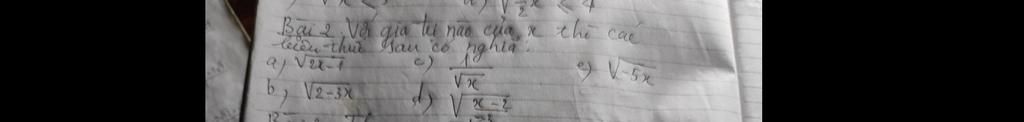 d) √½x ≤ 4
Bài 2. Với giá trị nào của x thì các
biểu thức sau có nghĩa:
a) √2x-1 c) 1/√x e) √-5x
b) √2-3x d) √x-2